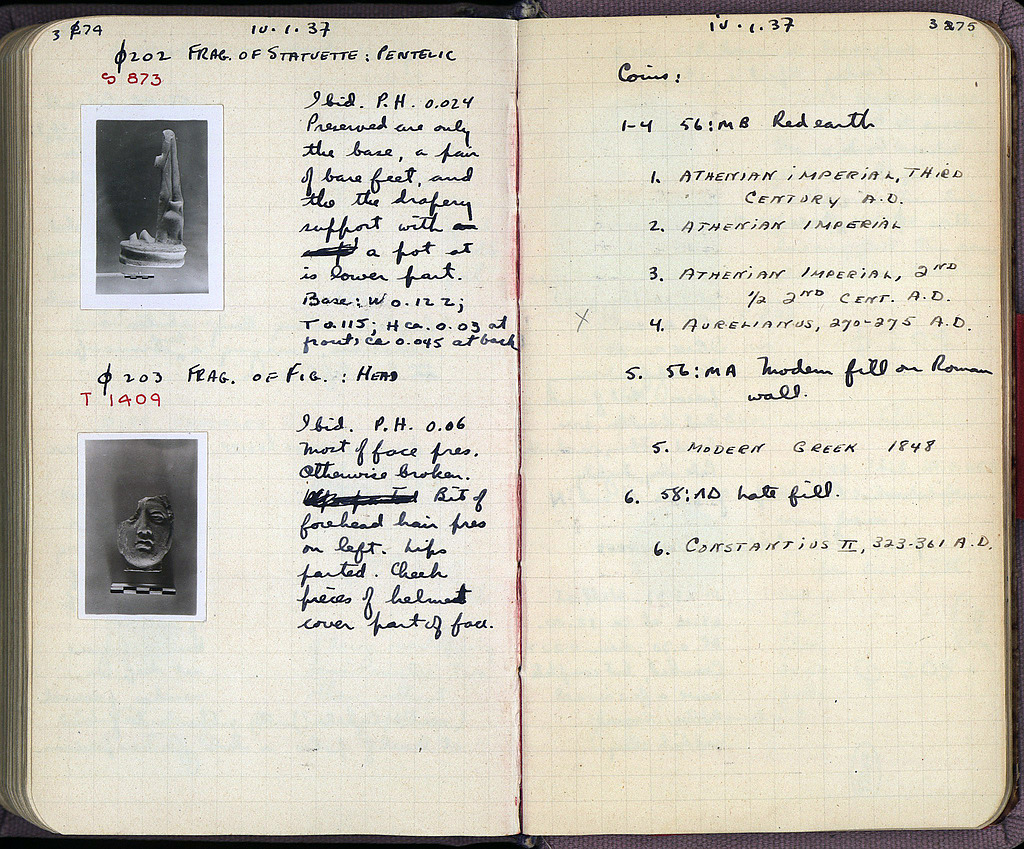 3274
IV.1.37
φ202 FRAG. OF STATUETTE: PENTELIC
S 873
Ibid. P.H. 0.024
Preserved are only
the base, a pair
of bare feet, and
the the drapery
support with
a pot at
is lower part.
Base: W 0.122;
T 0.115; H ca. 0.03 at
front; ca 0.045 at back
φ203 FRAG. OF FIG.: HEAD
T 1409
Ibid. P.H. 0.06
Most of face pres.
Otherwise broken.
Bit of
forehead hair pres
on left. Lips
parted. Cheek
pieces of helmet
cover part of face.
IV.1.37
3275
Coins:
1-4 56:MB Red earth
1. ATHENIAN IMPERIAL, THIRD
CENTURY A.D.
2. ATHENIAN IMPERIAL
3. ATHENIAN IMPERIAL, 2ND
1/2 2ND CENT. A.D.
X 4. AURELIANUS, 270-275 A.D.
5. 56:MA Modern fill on Roman
wall.
5. MODERN GREEK 1848
6. 58:ΛD Late fill.
6. CONSTANTIUS II, 323-361 A.D.